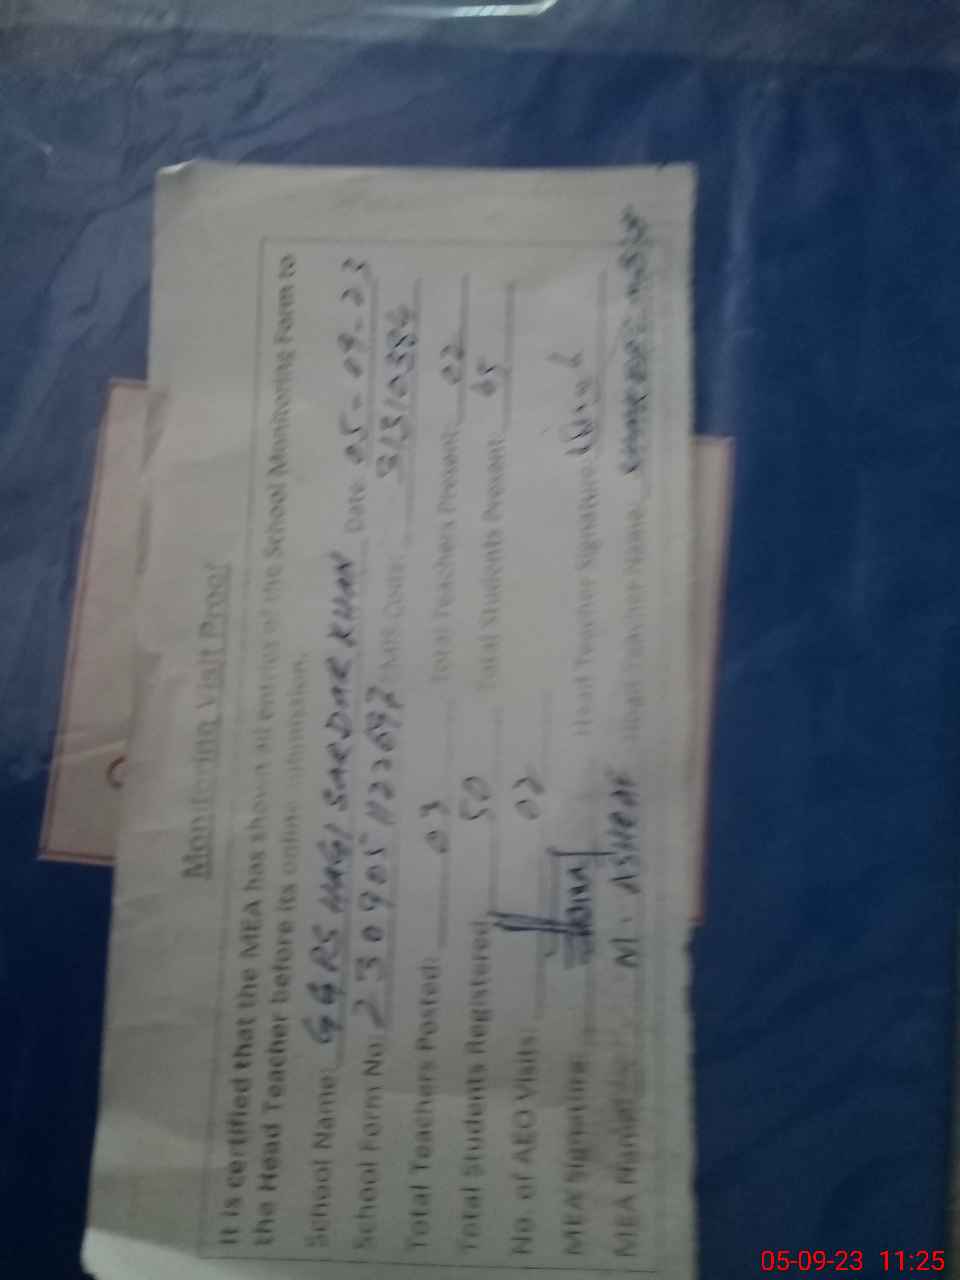 Monitoring Visit Proof
It is certified that the MEA has shown all entries of the School Monitoring Form to
the Head Teacher before its online submission.
School Name: GGPS HAGI SARDAR KHAN Date: 05-09-23
School Form No: 230905112269 EMIS Code: 31310386
Total Teachers Posted: 03 Total Teachers Present: 02
Total Students Registered: 50 Total Students Present: 65
No. of AEO Visits: 02
MEA Signature: Head Teacher Signature:
MEA Name: M. ASHRAF Head Teacher Name:
05-09-23 11:25